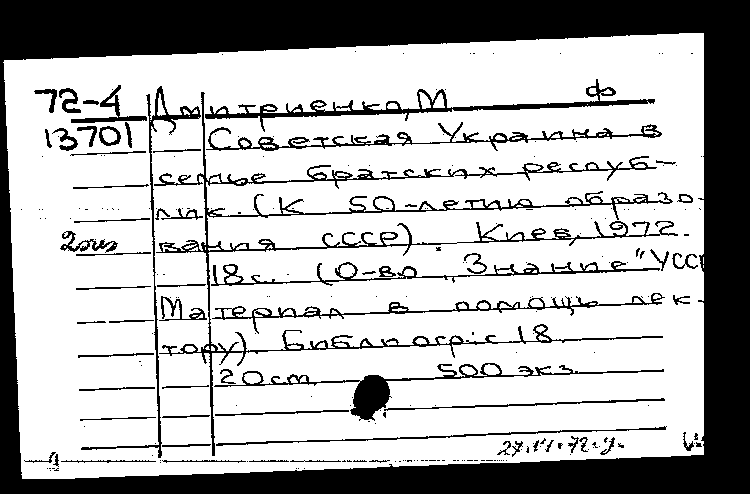 72-4 Дмитриенко, М ф
13701 Советская Украина в
семье братских респуб-
лик. (К 50-летию образо-
2экз вания СССР). Киев, 1972.
18с. (О-во „Знание" УССР
Материал в помощь лек-
тору). Библиогр: с 18.
20cm 500 экз.